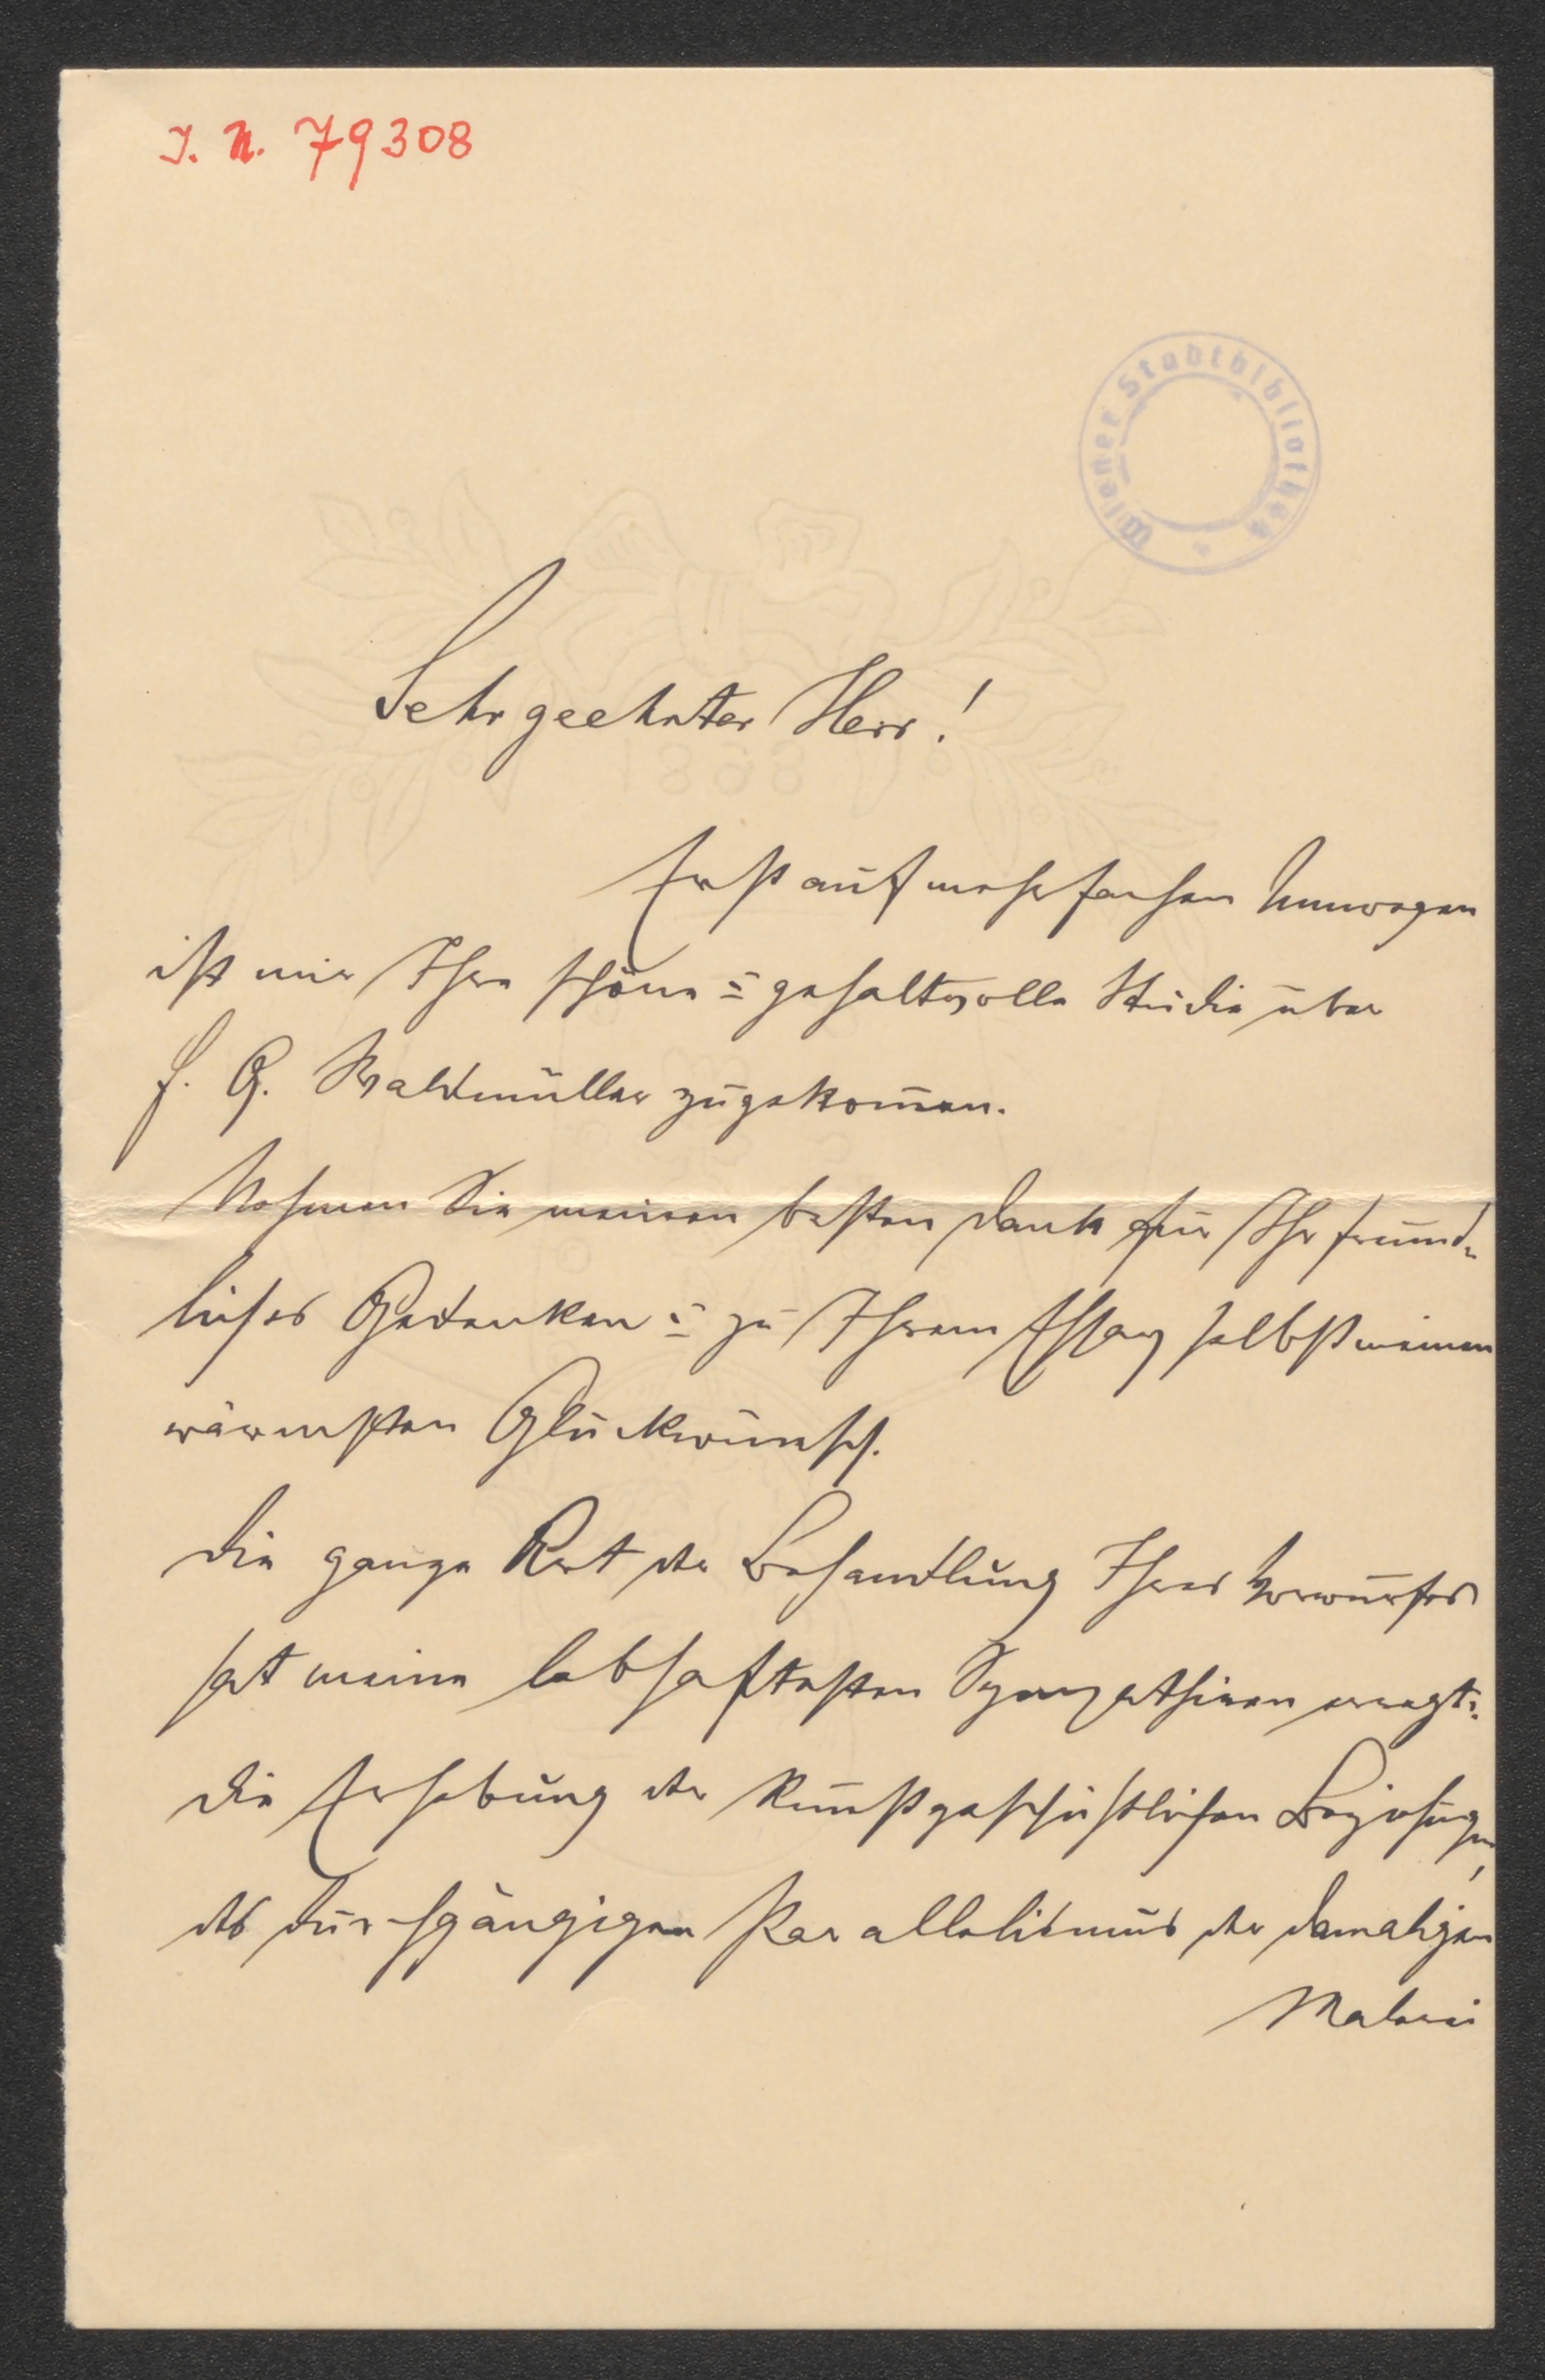 I. N. 79308
Wiener Stadtbibliothek
Sehr geehrter Herr!
1888
Erst auf mehrfachen Umwegen
ist mir Ihre schöne u gehaltvolle Studie über
F. G. Waldmüller zugekom̅en.
Nehmen Sie meinen besten Dank für Ihr freund-
liches Gedenken u zu Ihrem Essay selbst meinen
wärmsten Glückwunsch.
Die ganze Art der Behandlung Ihres Vorwurfes
hat meine lebhaftesten Sympathieen erregt:
die Erhebung der kunstgeschichtlichen Beziehungen,
des durchgängigen Parallelismus der damaligen
Malerei